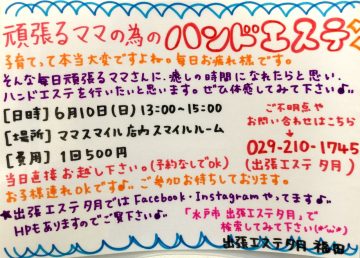 頑張るママの為のハンドエステ
子育てって本当大変ですよね。毎日お疲れ様です。
そんな毎日頑張るママさんに、癒しの時間になれたらと思い、
ハンドエステを行いたいと思います。ぜひ体感してみて下さい♪
[日時] 6月10日(日) 13:00〜15:00
[場所] ママスマイル店内スマイルルーム
[費用] 1回500円
ご不明点や
お問い合わせはこちら
029-210-1745
(出張エステ夕月)
当日直接お越し下さい。(予約なしでOK)
お子様連れOKです♪ご参加お待ちしております。
★出張エステ夕月ではFacebook・Instagramやってます♪
HPもありますのでご覧下さい♪
「水戸市 出張エステ夕月」で
検索してみて下さい(*^^*)
出張エステ夕月 福田